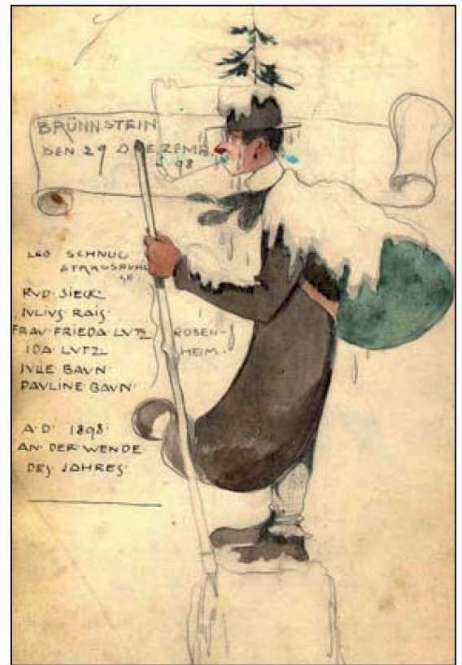 BRÜNNSTEIN
DEN 29 DEZEMB.
98
LEO SCHNUG
STRASSBURG
RVD·SIECK
IVLIVS RAIS·
FRAV·FRIEDA·LVTZ ROSEN-
IDA·LVTZ HEIM·
IVLIE BAVN·
PAVLINE·BAVN·
A·D· 1898·
AN·DER·WENDE
DES·JAHRES·